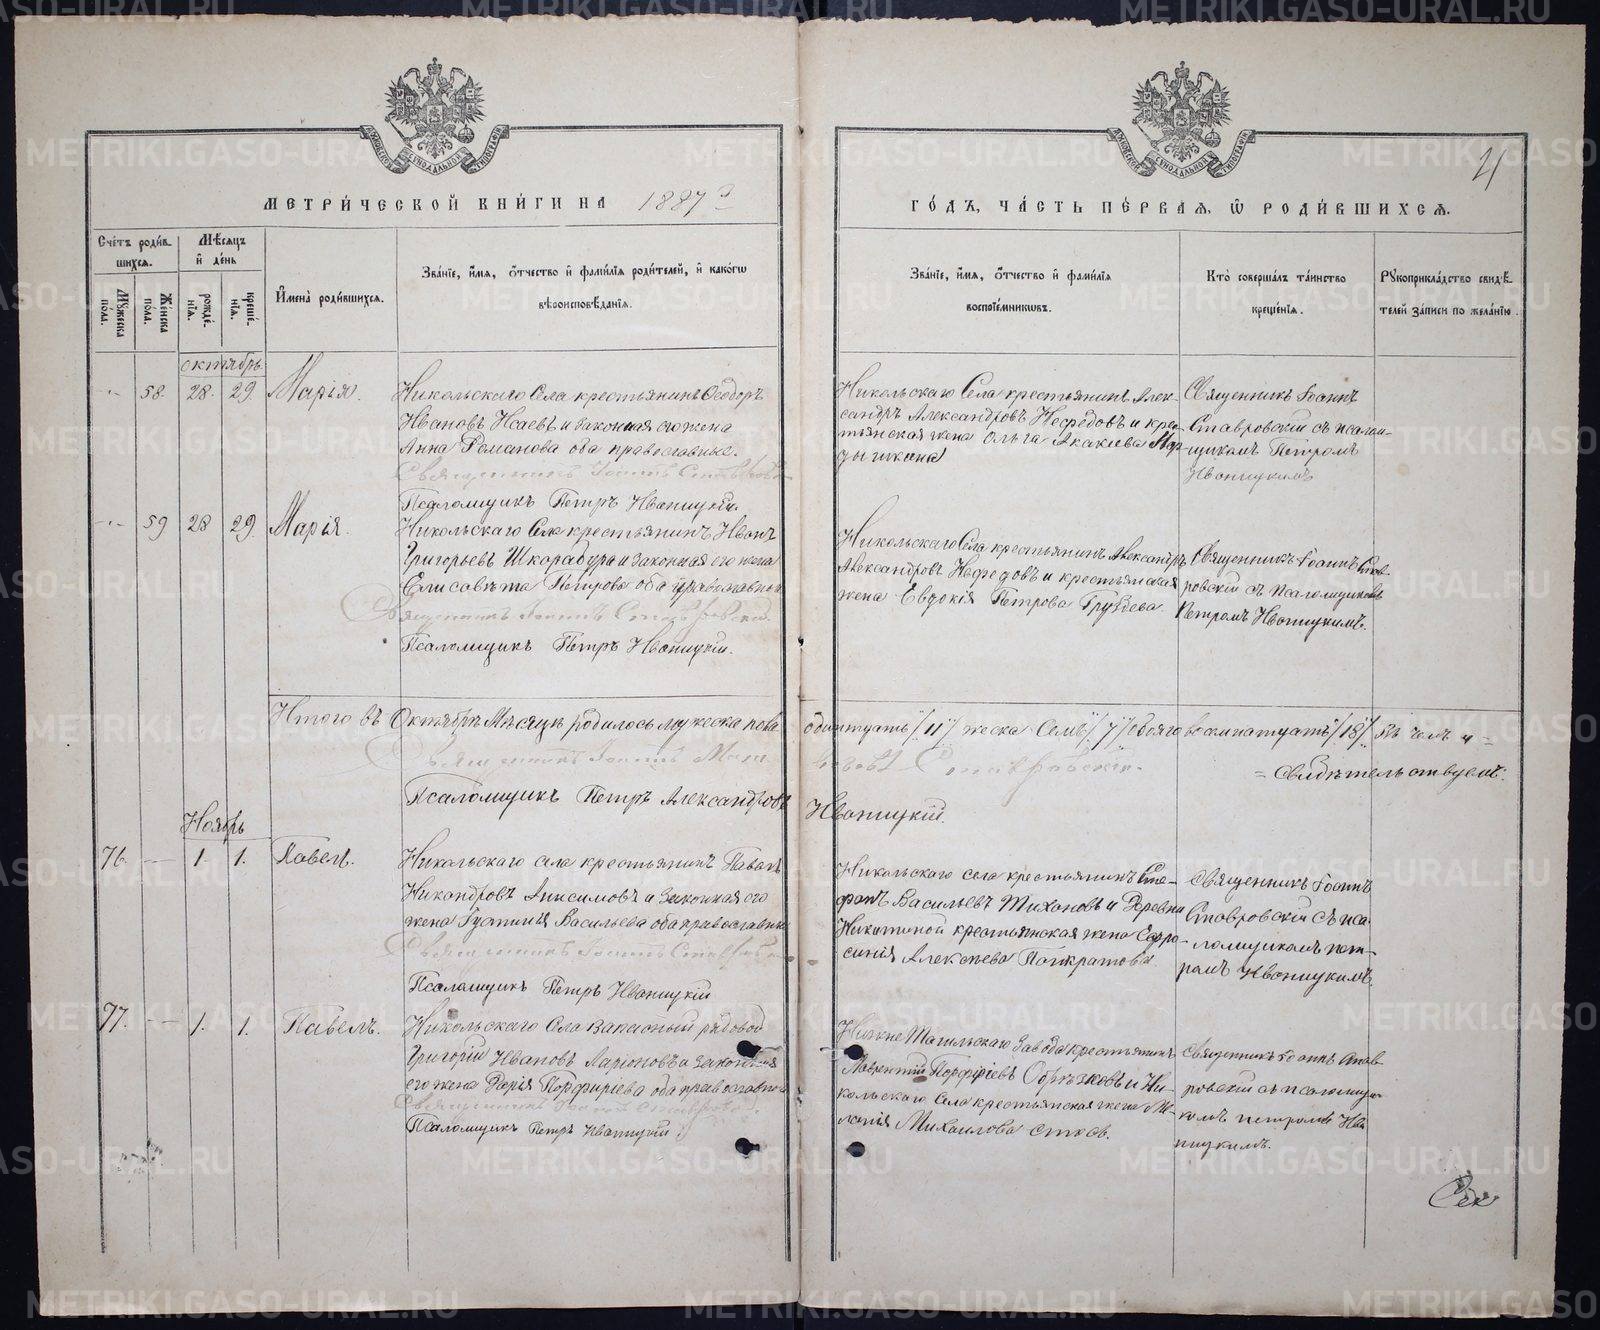 МЕТРИ́ЧЕСКОЙ КНИ́ГИ НА 1887 г
ГО́ДЪ, ЧА́СТЬ ПЕ́РВАЯ, Ѡ҆ РОДИ́ВШИХСѦ.
21
Сче́тъ роди́в-
шихсѧ.
Му́жеска
пола.
Же́нска
по́ла.
Мѣ́сѧцъ
и҆ де́нь
рожде́-
нїѧ.
креще́-
нїѧ.
И҆мена̀ роди́вшихсѧ.
Зва́нїе, и҆́мѧ, ѻ҆́тчество и҆ фами́лїѧ роди́телей, и҆ како́гѡ
вѣроисповѣ́данїѧ.
Зва́нїе, и҆́мѧ, ѻ҆́тчество и҆ фами́лїѧ
воспрїе́мниковъ.
Кто̀ соверша́лъ та́инство
креще́нїѧ.
Рꙋкоприкла́дство свидѣ́-
телей за́писи по жела́нїю.
октябрь
58. 28. 29. Марія.
Никольскаго Села крестьянинъ Ѳеодоръ
Ивановъ Исаевъ и законная его жена
Анна Романова оба православные.
Священникъ Іоаннъ Ставровскій
Псаломщикъ Петръ Иваницкій.
Никольскаго Села крестьянинъ Алек-
сандръ Александровъ Нефедовъ и крес-
тьянская жена Ольга Акакиева
Священникъ Іоаннъ
Ставровскій съ псалом-
щикомъ Петромъ
Иваницкимъ
59 28 29. Марія.
Никольскаго Села крестьянинъ Иванъ
Григорьевъ Шкарабура и законная его жена
Елисавета Петрова оба православные
Священникъ Іоаннъ Ставровскій.
Псаломщикъ Петръ Иваницкій.
Никольскаго Села крестьянинъ Александръ
Александровъ Нефедовъ и крестьянская
жена Евдокія Петрова Груздева.
Священникъ Іоаннъ Став-
ровскій съ псаломщикомъ
Петромъ Иваницкимъ.
Итого въ Октябрѣ Мѣсяцѣ родилось мужеска пола одинадцать /11/ женска Семь /7/ обоего восемнатцать /18/ Въ чемъ и
свидѣтельствуемъ:
Священникъ Іоаннъ Ставровскій.
Псаломщикъ Петръ Александровъ Иваницкій.
Ноябрь
76. 1. 1. Павелъ.
Никольскаго села крестьянинъ Павелъ
Никандровъ Анисимовъ и законная его
жена Густинія Васильева оба православные
Священникъ Іоаннъ Ставровскій
Псаломщикъ Петръ Иваницкій
Никольскаго села крестьянинъ Сте-
фанъ Васильевъ Тихоновъ и Деревни
Никитиной крестьянская жена Евфро-
синія Алексѣева Панкратова
Священникъ Іоаннъ
Ставровскій съ пса-
ломщикомъ Пет-
ромъ Иваницкимъ.
77. 1. 1. Павелъ.
Никольскаго Села Запасный рядовой
Григорій Ивановъ Ларіоновъ и законная
его жена Дарія Порфиріева оба православные
Священникъ Іоаннъ Ставровскій.
Псаломщикъ Петръ Иваницкій.
Нижне Тагильскаго Завода крестьянинъ
Лаврентій Порфиріевъ Обрѣзковъ и Ни-
кольскаго Села крестьянская жена Ме-
ланія Михаилова
Священникъ Іоаннъ Став-
ровскій съ псаломщи-
комъ Петромъ Ива-
ницкимъ.
METRIKI.GASO-URAL.RU